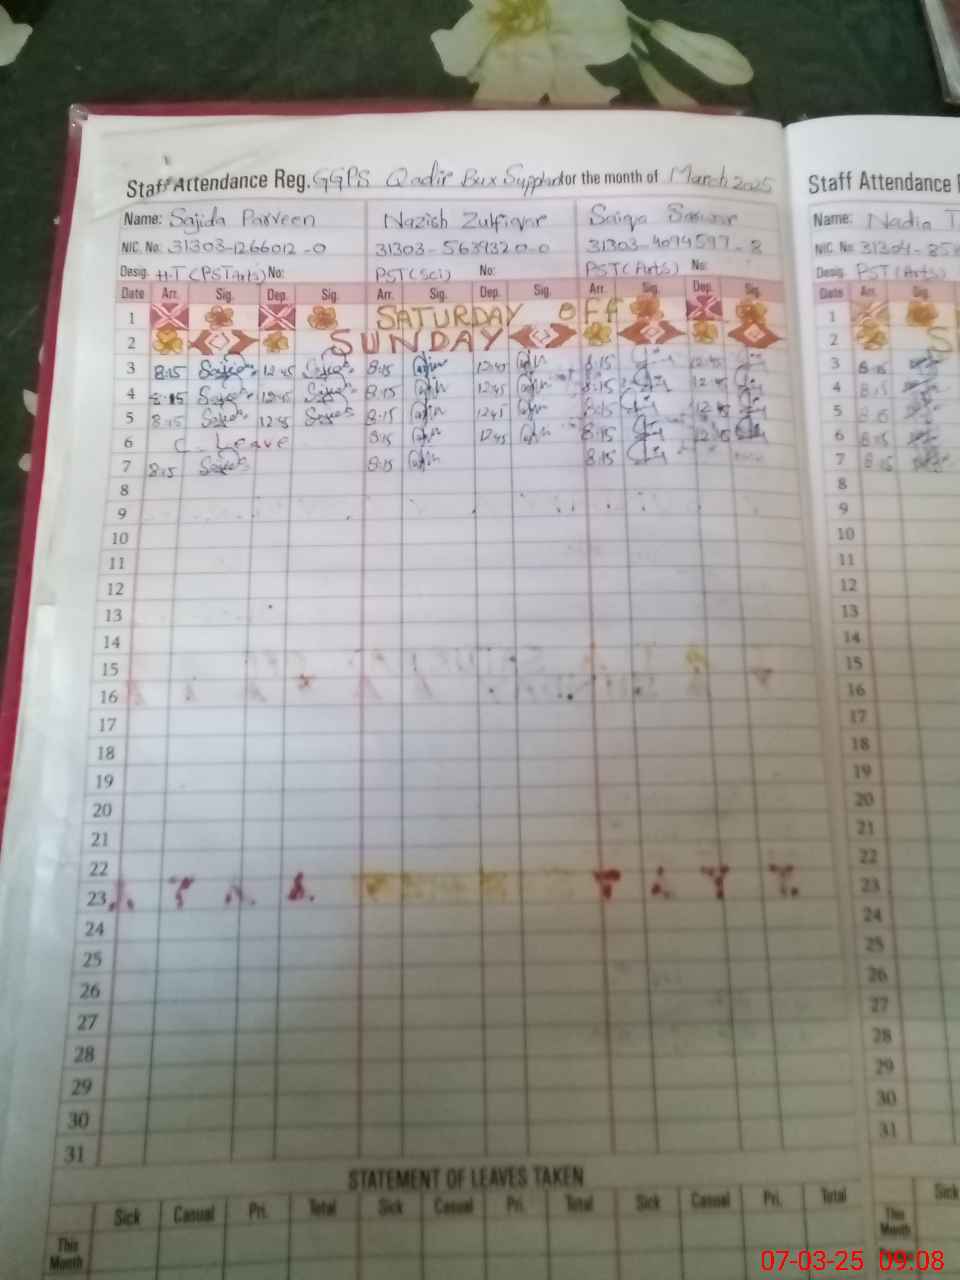 Staff Attendance Reg. GGPS Qadir Bux for the month of March 2025
Staff Attendance
Name: Sajida Parveen Nazish Zulfiqar Saiqa Sarwar
Name: Nadia T
NIC. No: 31303-1266012-0 31303-5639320-0 31303-4094597-8
NIC. No 31304-
Desig. H-T (PST Arts) No: PST (Sci) No: PST (Arts) No:
Desig. PST (Arts)
Date Arr. Sig. Dep. Sig. Arr. Sig. Dep. Sig. Arr. Sig. Dep. Sig.
Date Arr. Sig.
1 SATURDAY OFF
1
2 SUNDAY
2 S
3 8:15 12:45 8:15 12:45 8:15 12:45
3 8:15
4 8:15 12:45 8:15 12:45 8:15 12:45
4 8:15
5 8:15 12:45 8:15 12:45 8:15 12:45
5
6 C. Leave 8:15 12:45 8:15 12:45
6 8:15
7 8:15 8:15 8:15
7 8:15
8
8
9
9
10
10
11
11
12
12
13
13
14
14
15
15
16
16
17
17
18
18
19
19
20
20
21
21
22
22
23
23
24
24
25
25
26
26
27
27
28
28
29
29
30
30
31
31
STATEMENT OF LEAVES TAKEN
Sick Casual Pri. Total Sick Casual Pri. Total Sick Casual Pri. Total
Sick
This Month
This Month
07-03-25 09:08